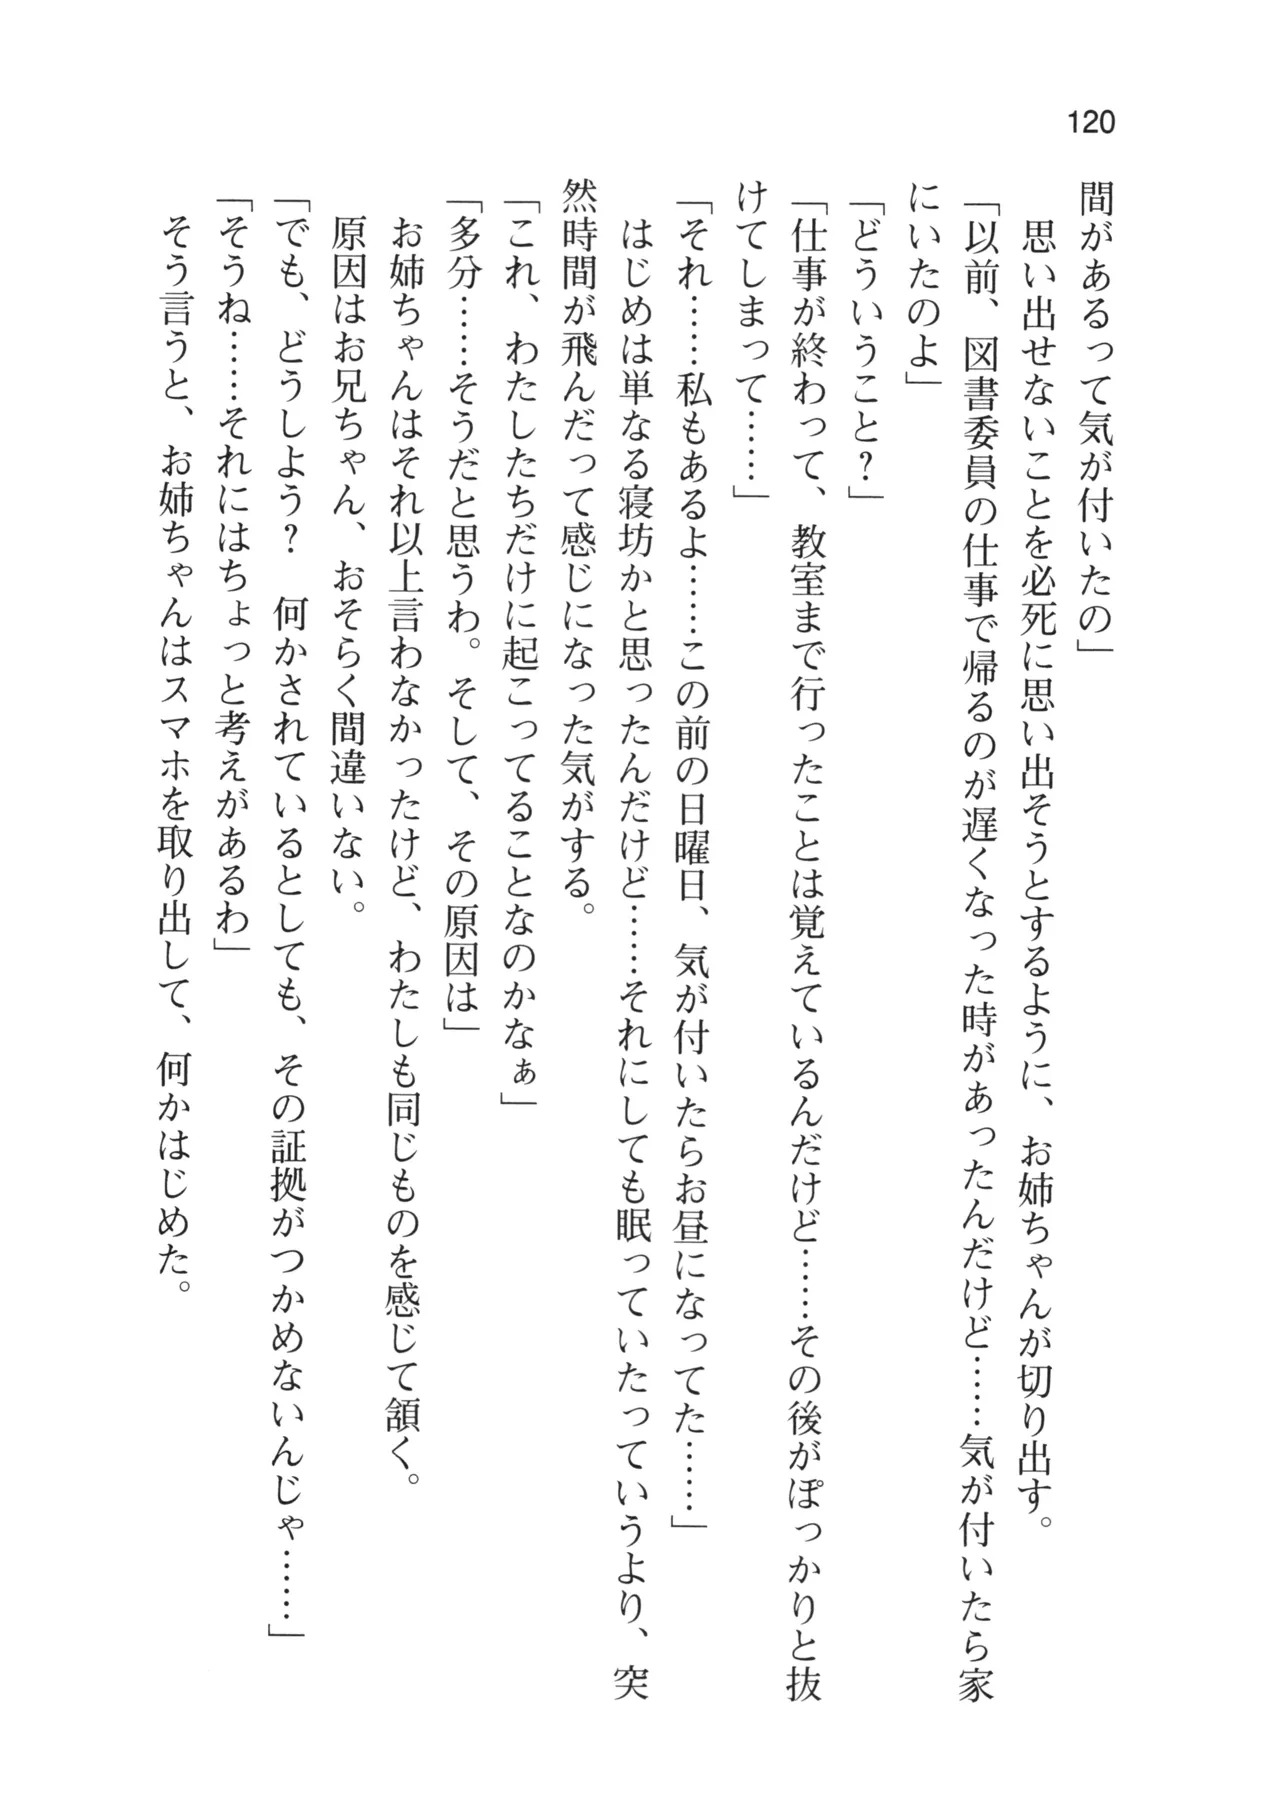 120
間があるって気が付いたの」
思い出せないことを必死に思い出そうとするように、お姉ちゃんが切り出す。
「以前、図書委員の仕事で帰るのが遅くなった時があったんだけど……気が付いたら家
にいたのよ」
「どういうこと？」
「仕事が終わって、教室まで行ったことは覚えているんだけど……その後がぽっかりと抜
けてしまって……」
「それ……私もあるよ……この前の日曜日、気が付いたらお昼になってた……」
はじめは単なる寝坊かと思ったんだけど……それにしても眠っていたっていうより、突
然時間が飛んだって感じになった気がする。
「これ、わたしたちだけに起こってることなのかなぁ」
「多分……そうだと思うわ。そして、その原因は」
お姉ちゃんはそれ以上言わなかったけど、わたしも同じものを感じて頷く。
原因はお兄ちゃん、おそらく間違いない。
「でも、どうしよう？　何かされているとしても、その証拠がつかめないんじゃ……」
「そうね……それにはちょっと考えがあるわ」
そう言うと、お姉ちゃんはスマホを取り出して、何かはじめた。